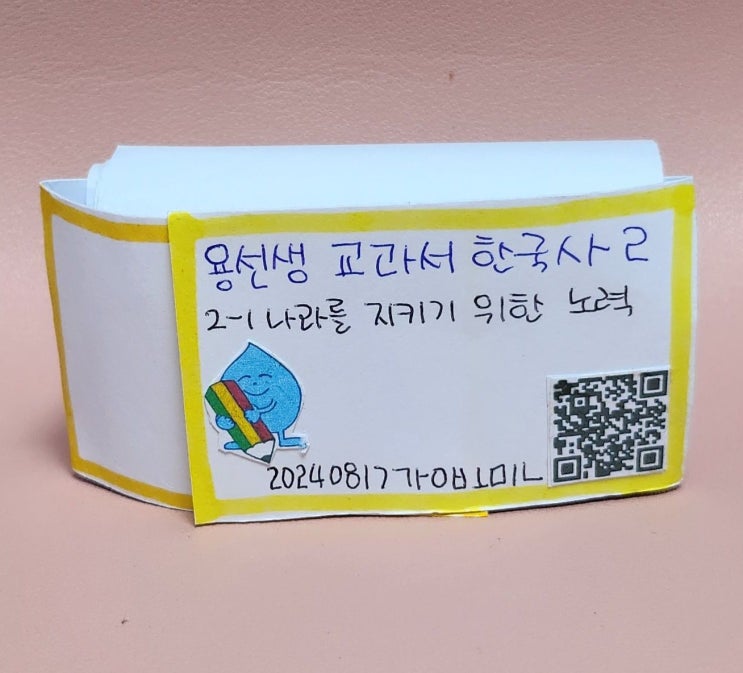 용선생 교과서 한국사 2
2-1 나라를 지키기 위한 노력
20240817